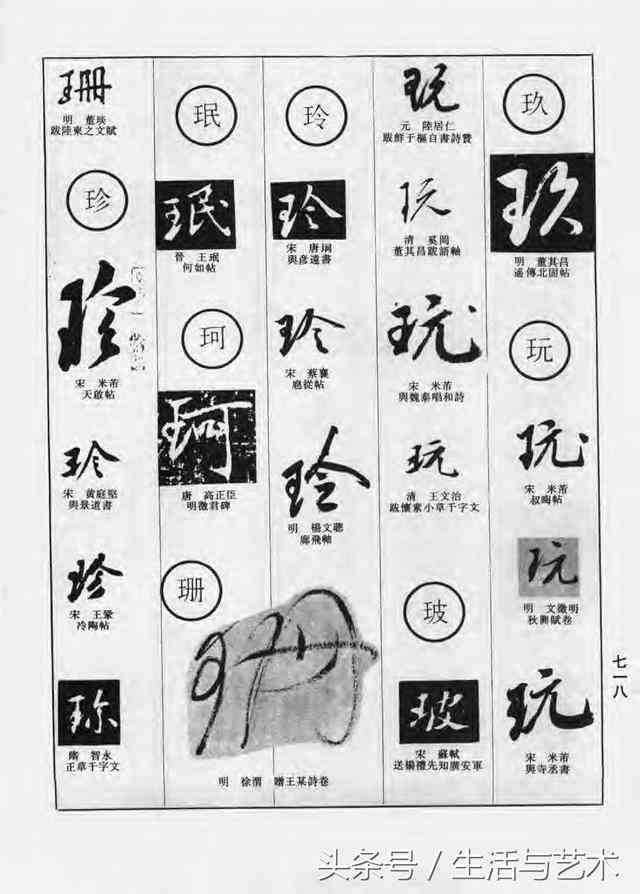 玖
玖
明 董其昌
遥傳北固帖
玩
玩
宋 米芾
叔晦帖
玩
明 文徵明
秋興賦卷
玩
宋 米芾
與寺丞書
玩
元 陸居仁
跋鮮于樞自書詩贊
玩
清 奚岡
董其昌跋語軸
玩
宋 米芾
與魏泰唱和詩
玩
清 王文治
跋懷素小草千字文
玻
玻
宋 蘇軾
送楊禮先知廣安軍
玲
玲
宋 唐坰
與彦遠書
玲
宋 蔡襄
扈從帖
玲
明 楊文驄
飛軸
珉
珉
晉 王珉
何如帖
珂
珂
唐 高正臣
明徵君碑
珊
珊
明 徐渭 贈王某詩卷
珊
明 董
跋陸柬之文賦
珍
珍
宋 米芾
天啟帖
珍
宋 黄庭堅
與景道書
珍
宋 王鞏
冷陶帖
珎
隋 智永
正草千字文
七一八
头条号 / 生活与艺术